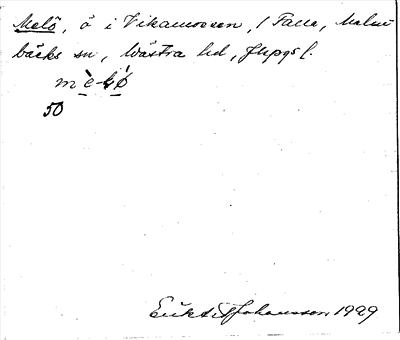 Melö, ö i Vikamossen, / Falla, Malm-
bäcks sn, Västra hd, Jkpgs l.
50
Erik Johansson 1929